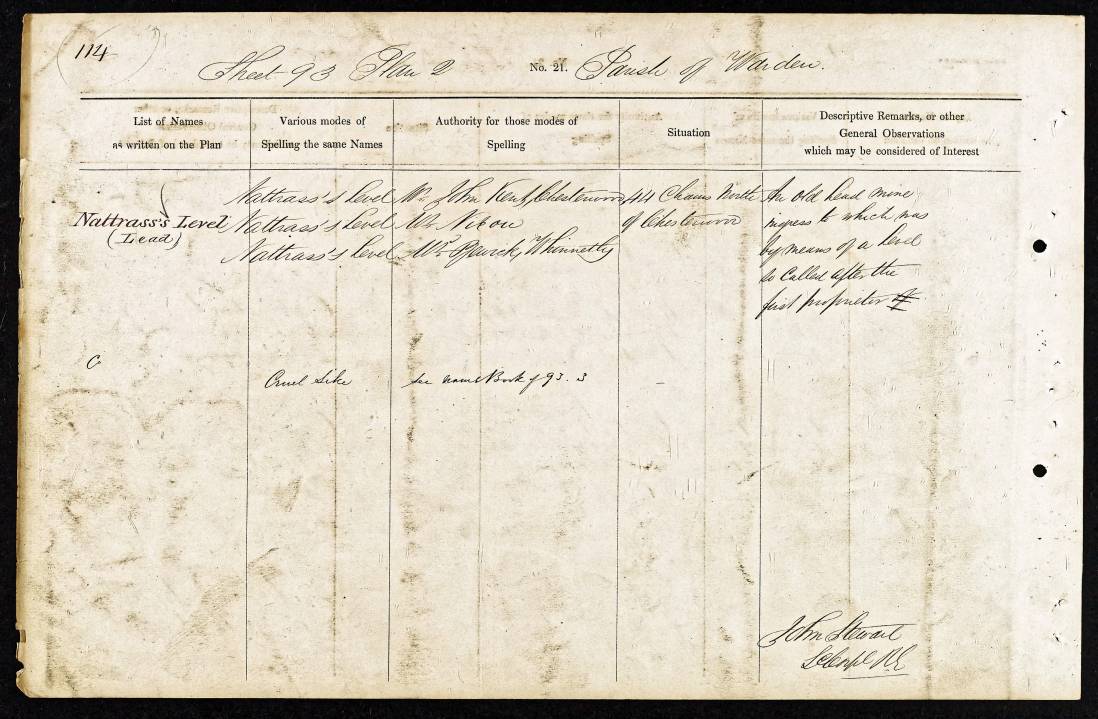 114
Sheet 93 Plan 2 No. 21. Parish of Warden.
List of Names as written on the Plan
Various modes of Spelling the same Names
Authority for those modes of Spelling
Situation
Descriptive Remarks, or other General Observations which may be considered of Interest
Nattrass's Level
(Lead)
Nattrass's Level
Nattrass's Level
Nattrass's Level
Mr. John Kent, Chesterwood
Mr Nixon
Mr. Whinnetly
44 Chains North
of Chesterwood
An old Lead mine
ingress to which was
by means of a Level
so Called after the
first proprietor
C
Cruel Sike
see name Book of 93. 3
John Stewart
R.E.